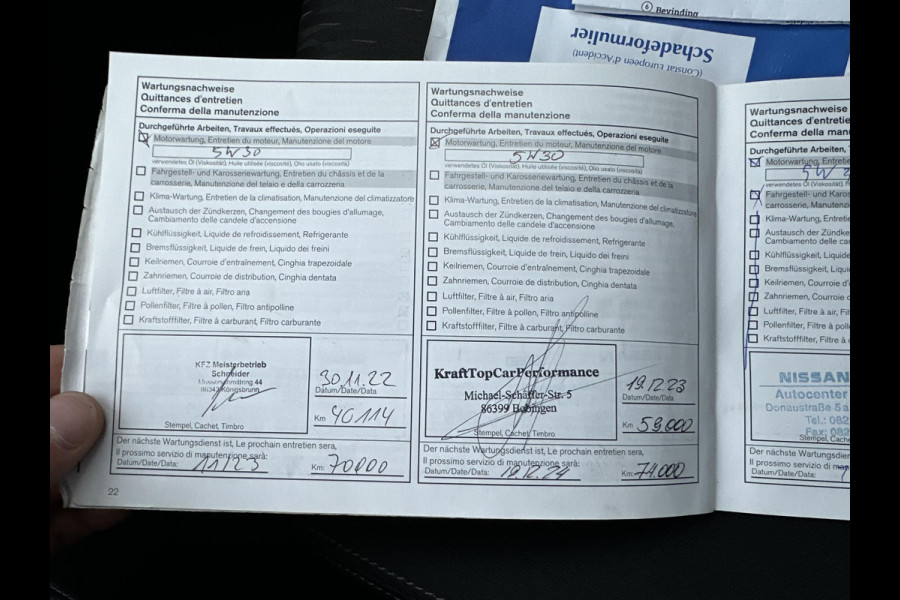 6 Bevinding
Schadeformulier
(Constat européen d'Accident)
Wartungsnachweise
Quittances d'entretien
Conferma della manutenzione
Durchgeführte Arbeiten, Travaux effectués, Operazioni eseguite
Motorwartung, Entretien du moteur, Manutenzione del motore
5W30
verwendetes Öl (Viskosität), Huile utilisée (viscosité), Olio usato (viscosità)
Fahrgestell- und Karosseriewartung, Entretien du châssis et de la
carrosserie, Manutenzione del telaio e della carrozzeria
Klima-Wartung, Entretien de la climatisation, Manutenzione del climatizzatore
Austausch der Zündkerzen, Changement des bougies d'allumage,
Cambiamento delle candele d'accensione
Kühlflüssigkeit, Liquide de refroidissement, Refrigerante
Bremsflüssigkeit, Liquide de frein, Liquido dei freini
Keilriemen, Courroie d'entraînement, Cinghia trapezoidale
Zahnriemen, Courroie de distribution, Cinghia dentata
Luftfilter, Filtre à air, Filtro aria
Pollenfilter, Filtre à pollen, Filtro antipolline
Kraftstofffilter, Filtre à carburant, Filtro carburante
KFZ Meisterbetrieb
Schneider
44
86343 Königsbrunn
30.11.22
Datum/Date/Data
Km 40114
Stempel, Cachet, Timbro
Der nächste Wartungsdienst ist, Le prochain entretien sera,
Il prossimo servizio di manutenzione sarà:
Datum/Date/Data: 11/23 Km: 70000
22
Wartungsnachweise
Quittances d'entretien
Conferma della manutenzione
Durchgeführte Arbeiten, Travaux effectués, Operazioni eseguite
Motorwartung, Entretien du moteur, Manutenzione del motore
5W30
verwendetes Öl (Viskosität), Huile utilisée (viscosité), Olio usato (viscosità)
Fahrgestell- und Karosseriewartung, Entretien du châssis et de la
carrosserie, Manutenzione del telaio e della carrozzeria
Klima-Wartung, Entretien de la climatisation, Manutenzione del climatizzatore
Austausch der Zündkerzen, Changement des bougies d'allumage,
Cambiamento delle candele d'accensione
Kühlflüssigkeit, Liquide de refroidissement, Refrigerante
Bremsflüssigkeit, Liquide de frein, Liquido dei freini
Keilriemen, Courroie d'entraînement, Cinghia trapezoidale
Zahnriemen, Courroie de distribution, Cinghia dentata
Luftfilter, Filtre à air, Filtro aria
Pollenfilter, Filtre à pollen, Filtro antipolline
Kraftstofffilter, Filtre à carburant, Filtro carburante
KraftTopCarPerformance
Michael-Schäffer-Str. 5
86399 Bobingen
19.12.23
Datum/Date/Data
Km 59.000
Stempel, Cachet, Timbro
Der nächste Wartungsdienst ist, Le prochain entretien sera,
Il prossimo servizio di manutenzione sarà:
Datum/Date/Data: 19.12.24 Km: 74.000
Wartungsnachweise
Quittances d'entretien
Conferma della man
Durchgeführte Arbeiten, Tr
Motorwartung, Entretie
5W
verwendetes Öl (Viskosität), H
Fahrgestell- und Kaross
carrosserie, Manutenzion
Klima-Wartung, Entretie
Austausch der Zündker
Cambiamento delle can
Kühlflüssigkeit, Liquide
Bremsflüssigkeit, Liquid
Keilriemen, Courroie d'e
Zahnriemen, Courroie d
Luftfilter, Filtre à air, Filt
Pollenfilter, Filtre à poll
Kraftstofffilter, Filtre à c
NISSAN
Autocenter
Donaustraße 5a
Tel.: 082
Fax: 082
Stempel, Cache
Der nächste Wartungsdien
Il prossimo servizio di man
Datum/Date/Data: